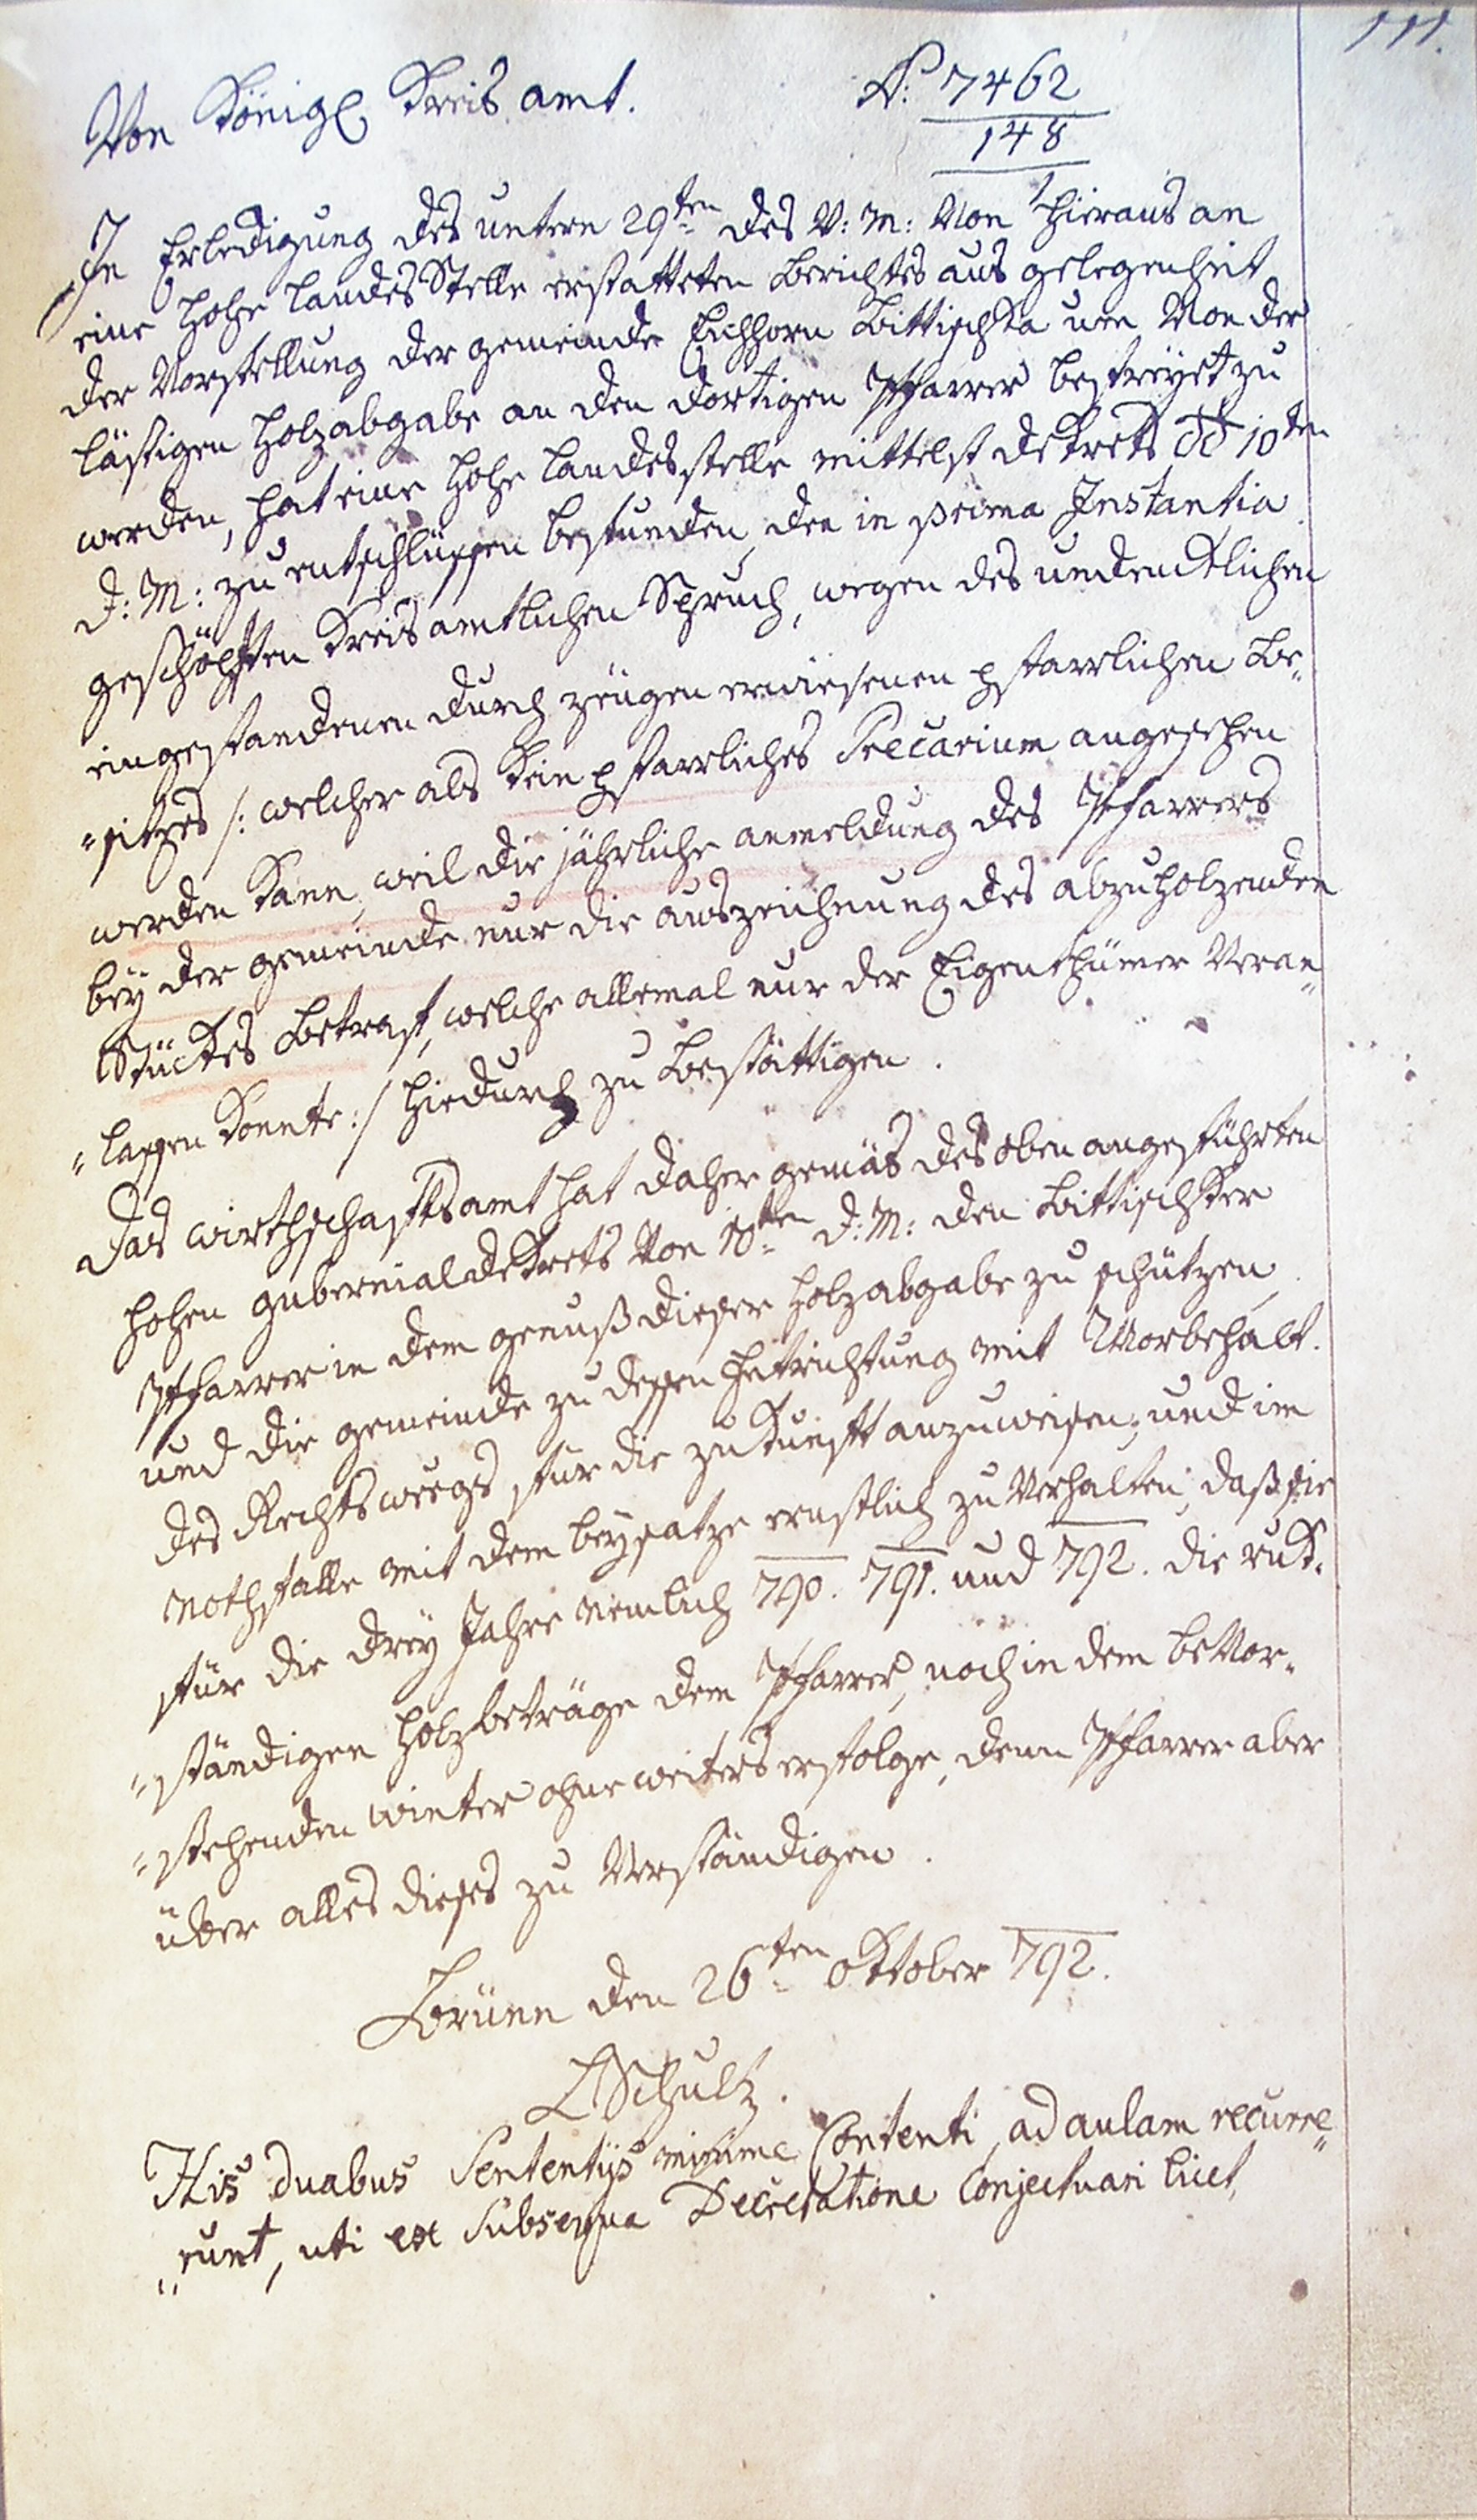 111.
Von Königl Kreis amt. N: 7462
148
In Erledigung des untern 29ten des V: M: Von hieraus an
eine hohe landes Stelle erstatteten Berichtes aus gelegenheit
der Vorstellung der gemeinde Eichhorn Bittischka um Von der
lästigen holzabgabe an den dortigen Pfarrer befreyet zu
werden, hat eine hohe landesstelle mittelst dekrets dd 10ten
d: M: zu entschlüssen befunden, den in prima Instantia
geschöpften Kreisamtlichen Spruch, wegen des undenklichen
eingestandenen durch zeugen erwiesenen pfarrlichen Be„
„sitzes /: welcher als kein pfarrliches Precarium angesehen
werden kann, weil die jährliche anmeldung des Pfarrers
bey der gemeinde nur die auszeichnung des abzuholzenden
Stückes Betraf, welche allemal nur der Eigenthümer Veran„
„lassen konnte :/ hiedurch zu Bestättigen.
Das wirthschaftsamt hat daher gemäs des oben angeführten
hohen gubernialdekrets Von 10ten d: M: den Bittischker
Pfarrer in dem genuß dieser holzabgabe zu schützen,
und die gemeinde zu dessen Entrichtung mit Vorbehalt
des Rechtsweegs, für die zukunft anzuweisen, und im
Nothfalle mit dem beysatze ernstlich zu Verhalten, daß sie
für die drey Jahre nemlich 790. 791. und 792. die ruk„
„ständigen holzbeträge dem Pfarrer, noch in dem beVor„
„stehenden winter ohne weiters erfolge, denn Pfarrer aber
über alles dieses zu Verständigen.
Brünn den 26ten oktober 792.
LSchultz.
His duabus Sententijs minime Contenti, ad aulam recurre„
„runt, uti ex Subsequa Decretatione Conjectuari licet,